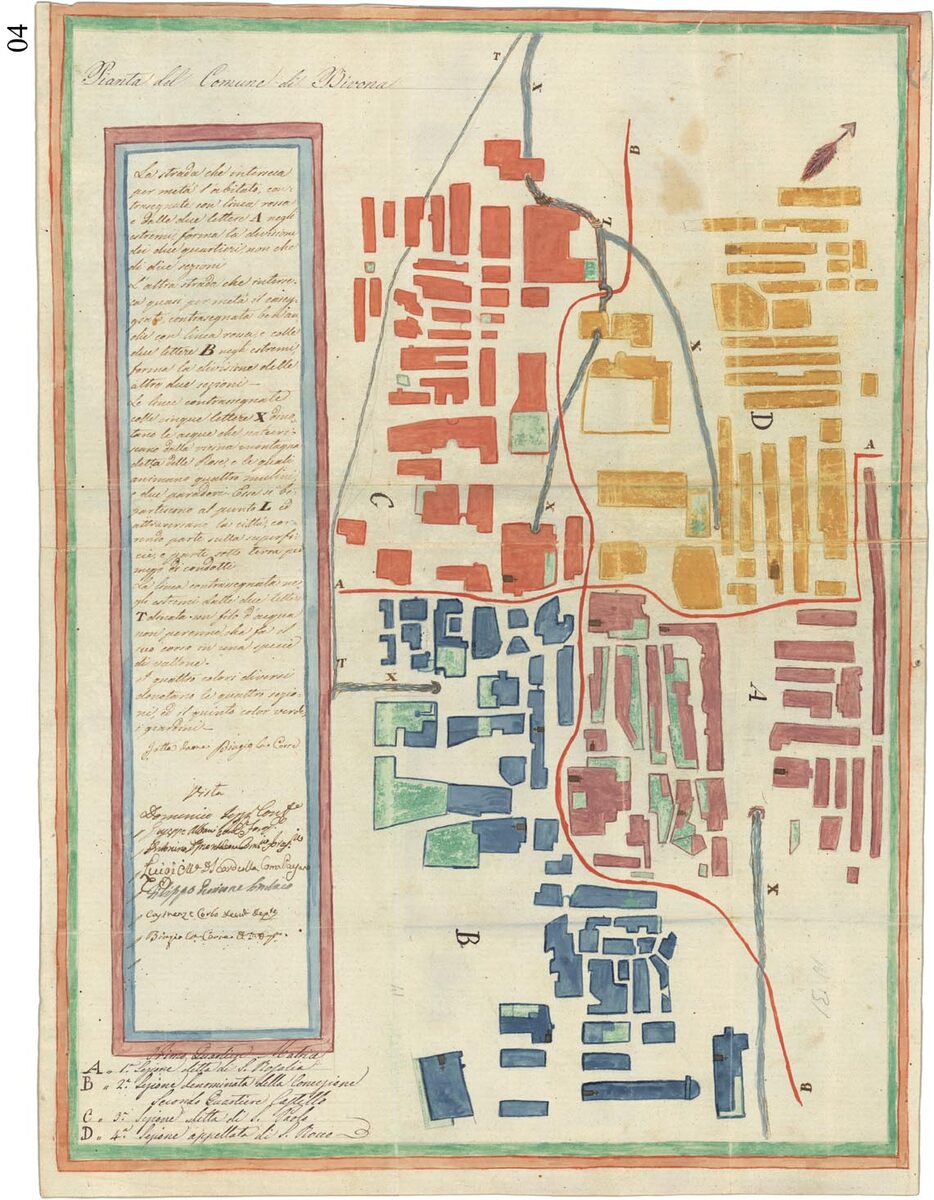 04
Pianta del Comune di Bivona
La strada che interseca
per metà l'abitato, con-
trasegnata con linea rossa
e dalle due lettere A negli
estremi forma la divisione
dei due quartieri non che
di due sezioni
L'altra strada che interse-
ca quasi per metà il caseg-
giato contrasegnata ben'an-
che con linea rossa e colle
due lettere B negli estremi
forma la divisione delle
altre due sezioni.—
Le linee contrasegnate
colle cinque lettere X dino-
tano le acque che
dalla vicina montagna
detta delle Rose, e le quali
animano quattro mulini,
e due paradori. Esse si bi-
partiscono al punto L ed
attraversano la città, cor-
rendo parte sulla superfi-
cie, e parte sotto terra per
mezzo di condotti.
La linea contrasegnata ne-
gli estremi dalle due lettere
T dinota un filo d'acqua
non perenne, che fa il
suo corso in una specie
di vallone.—
I quattro colori diversi
denotano le quattro sezio-
ni, ed il quinto color verde,
i giardini.—
Biagio La Corte
Visto
Domenico
Luigi
Filippo Sindaco
Biagio La Corte
Primo Quartiere
A " 1ª Sezione detta di S. Rosalia
B " 2ª Sezione denominata della Concezione
Secondo Quartiere Castello
C " 3ª Sezione detta di S. Paolo
D " 4ª Sezione appellata di S. Rocco
T
X
B
L
X
D
A
C
X
A
T
X
A
X
B
B